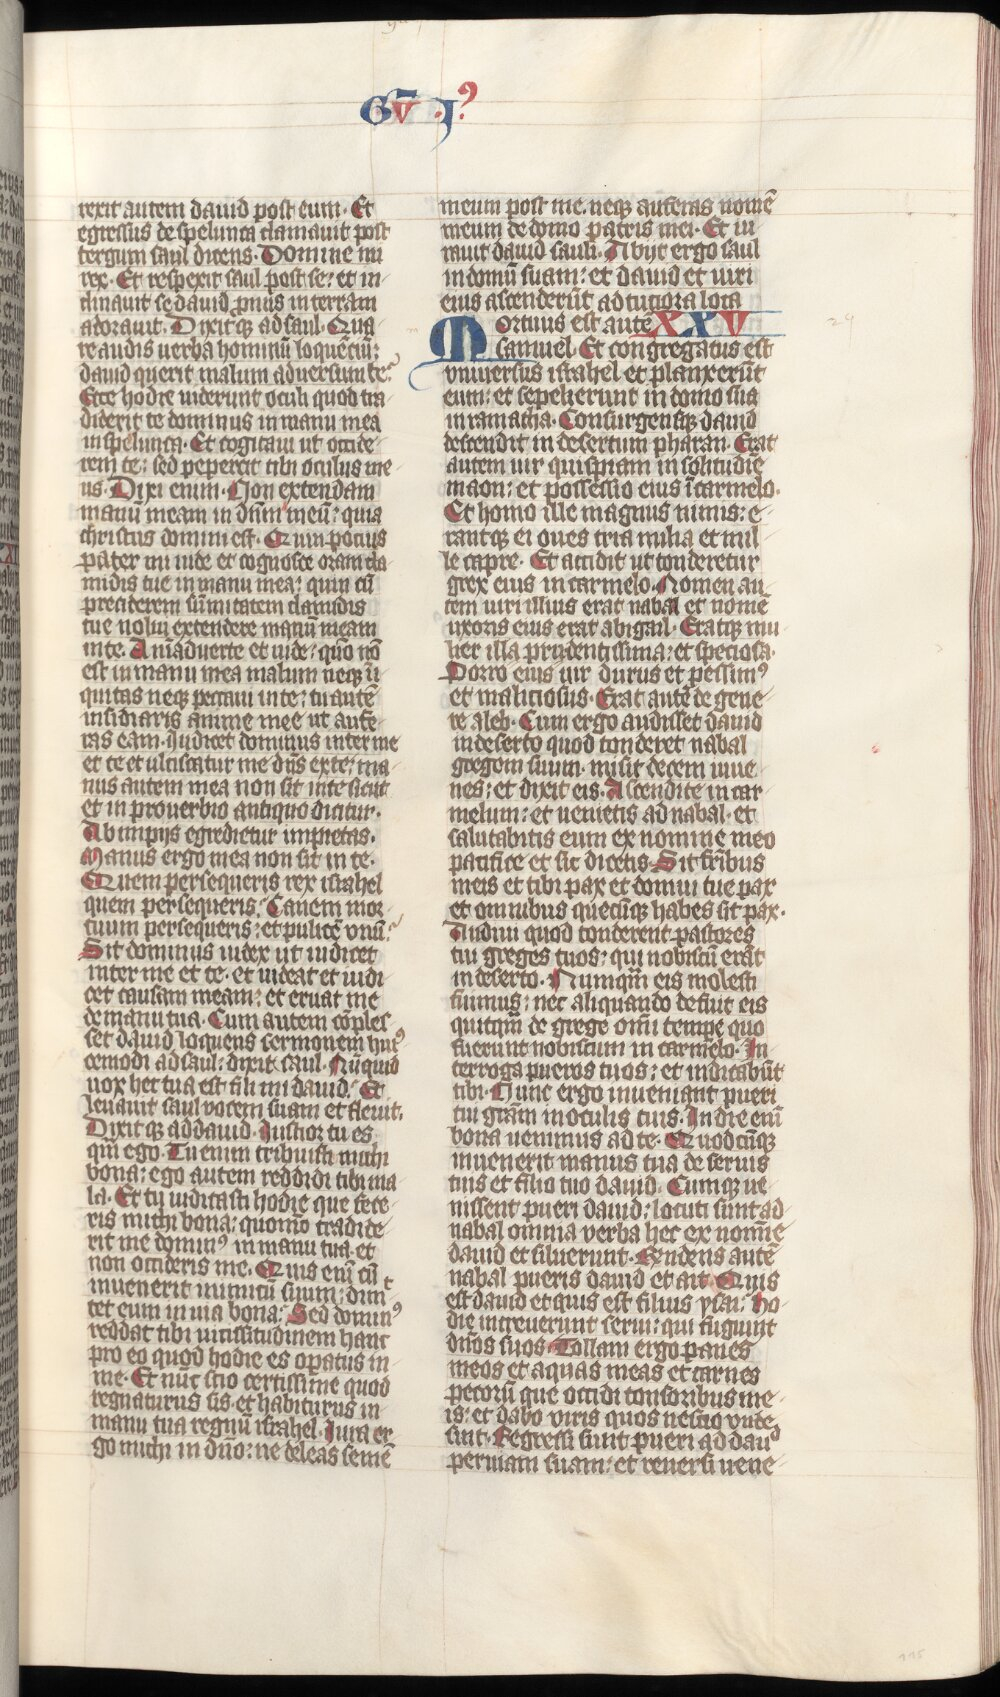 Gū .I9
rexit autem dauid post eum. Et
egressus de spelunca clamauit post
tergum saul dicens. Domine mi
rex. Et respexit saul post se: et in-
clinauit se dauid pronus in terram
adorauit. Dixitqꝫ ad saul. Qua-
re audis uerba hominū loquēciū:
dauid querit malum aduersum te?
Ecce hodie uiderunt oculi quod tra-
diderit te dominus in manu mea
in spelunca. Et cogitaui ut occide-
rem te: sed pepercit tibi oculus me-
us. Dixi enim. Non extendam
manū meam in dn̄m meū: quia
christus domini est. Quin pocius
pater mi uide et cognosce oram cla-
midis tue in manu mea: quin cū
preciderem sūmitatem clamidis
tue nolui extendere manū meam
in te. Aniaduerte et uide: qūo nō
est in manu mea malum neqꝫ ī-
quitas neqꝫ peccaui in te: tu autē
insidiaris anime mee ut aufe-
ras eam. iudicet dominus inter me
et te et ulciscatur me dn̄s ex te: ma-
nus autem mea non sit in te sicut
et in prouerbio antiquo dicitur.
Ab impijs egredietur impietas.
Manus ergo mea non sit in te.
Quem persequeris rex israhel
quem persequeris? Canem mor-
tuum persequeris: et pulicē vnū?
Sit dominus iudex ut iudicet
inter me et te. et uideat et iudi-
cet causam meam: et eruat me
de manu tua. Cum autem cōples-
set dauid loquens sermonem hui9-
cemodi ad saul: dixit saul. Nūquid
uox hec tua est fili mi dauid? Et
leuauit saul vocem suam et fleuit.
Dixitqꝫ ad dauid. Iustior tu es
qm̄ ego. Tu enim tribuisti michi
bona: ego autem reddidi tibi ma-
la. Et tu iudicasti hodie que fece-
ris michi bona: quomō tradide-
rit me domin9 in manu tua. et
non occideris me. Quis enī cū
inuenerit inimicū suum: dimit-
tet eum in uia bona? Sed domin9
reddat tibi uicissitudinem hanc
pro eo quod hodie es opatus in
me. Et nūc scio certissime quod
regnaturus sis. et habiturus in
manu tua regnū israhel. Iura er-
go michi in dn̄o: ne deleas semē
meum post me. neqꝫ auferas nomē
meum de domo patris mei. Et iu-
rauit dauid sauli. Abijt ergo saul
in domū suam: et dauid et uiri
eius ascenderūt ad tuciora loca
Mortuus est autē XXV
samuel. Et congregatus est
vniuersus israhel et planxerūt
eum: et sepelierunt in domo sua
in ramatha. Consurgensqꝫ dauid
descendit in desertum pharan. Erat
autem uir quispiam in solitudīe
maon: et possessio eius ī carmelo.
Et homo ille magnus nimis: e-
rantqꝫ ei oues tria milia et mil-
le capre. Et accidit ut tonderetur
grex eius in carmelo. Nomen au-
tem uiri illius erat nabal et nomē
uxoris eius erat abigail. Eratqꝫ mu-
lier illa prudentissima: et speciosa.
Porro eius uir durus et pessim9
et maliciosus. Erat autē de gene-
re aleb. Cum ergo audisset dauid
in deserto quod tonderet nabal
gregem suum. misit decem iuue-
nes: et dixit eis. Ascendite in car-
melum: et uenietis ad nabal. et
salutabitis eum ex nomine meo
pacifice et sic dicetis. Sit fr̄ibus
meis et tibi pax et domui tue pax
et omnibus quecūqꝫ habes sit pax.
Audiui quod tonderent pastores
tui greges tuos: qui nobiscū erāt
in deserto. Numqm̄ eis molesti
fuimus: nec aliquando defuit eis
quicqm̄ de grege omī tempe quo
fuerunt nobiscum in carmelo. In-
terroga pueros tuos: et indicabūt
tibi. Nunc ergo inueniant pueri
tui grām in oculis tuis. In die enī
bona uenimus ad te. Quodcūqꝫ
inuenerit manus tua da seruis
tuis et filio tuo dauid. Cumqꝫ ue-
nissent pueri dauid: locuti sunt ad
nabal omnia verba hec ex nomīe
dauid et siluerunt. Rn̄dens autē
nabal pueris dauid et ait. Quis
est dauid et quis est filius ysai? Ho-
die increuerunt serui: qui fugiunt
dn̄os suos. Tollam ergo panes
meos et aquas meas et carnes
pecorū que occidi tonsoribus me-
is: et dabo viris quos nescio vnde
sint. Regressi sunt pueri ad dauid
per uiam suam: et reuersi uene-
115